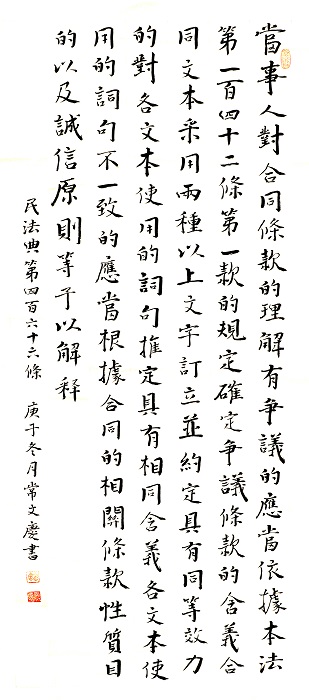 當事人對合同條款的理解有争議的應當依據本法
第一百四十二條第一款的規定確定争議條款的含義合
同文本采用兩種以上文字訂立並約定具有同等效力
的對各文本使用的詞句推定具有相同含義各文本使
用的詞句不一致的應當根據合同的相關條款性質目
的以及誠信原則等予以解释
民法典第四百六十六條 庚子冬月常文慶書